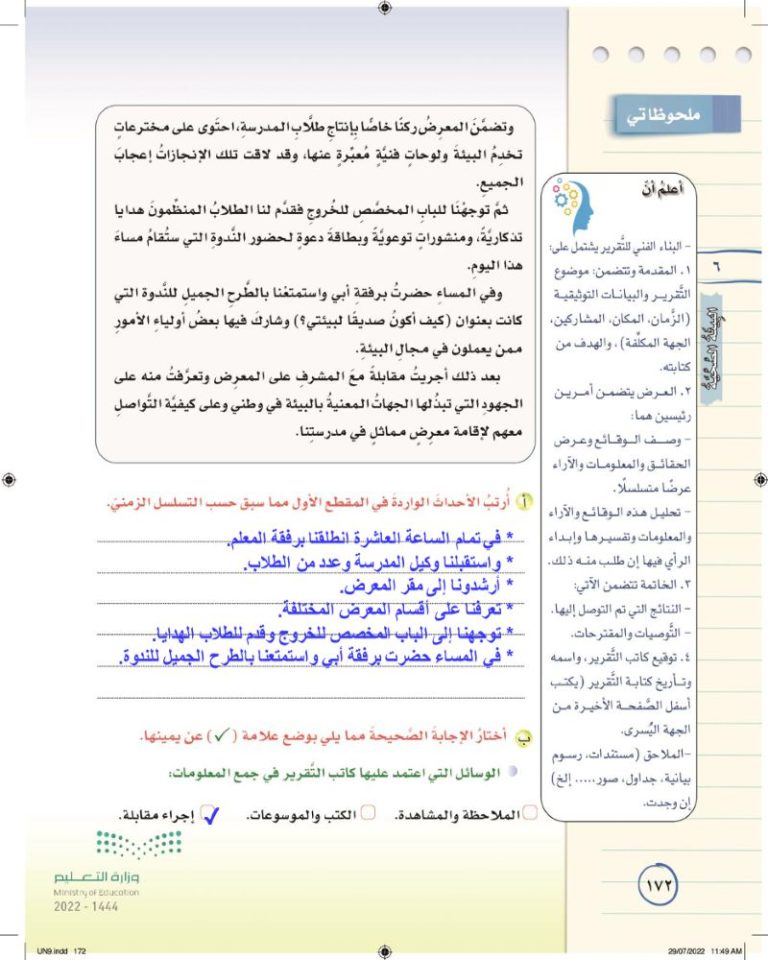 ملحوظاتي
وتضمَّنَ المعرِضُ ركنًا خاصًا بإنتاجِ طلَّابِ المدرسةِ، احتَوى على مخترعاتٍ
تخدِمُ البيئةَ ولوحاتٍ فنيَّةٍ مُعبِّرةٍ عنها، وقد لاقت تلك الإنجازاتُ إعجابَ
الجميعِ.
ثمَّ توجهْنَا للبابِ المخصَّصِ للخُروجِ فقدَّم لنا الطلابُ المنظِّمونَ هدايا
تذكاريَّةً، ومنشوراتٍ توعويَّةً وبطاقةَ دعوةٍ لحضورِ النَّدوةِ التي ستُقامُ مساءَ
هذا اليومِ.
وفي المساءِ حضرتُ برفقةِ أبي واستمتعْنا بالطَّرحِ الجميلِ للندوةِ التي
كانت بعنوان (كيف أكونُ صديقًا لبيئتي؟) وشاركَ فيها بعضُ أولياءِ الأمورِ
ممن يعملون في مجالِ البيئةِ.
بعد ذلك أجريتُ مقابلةً معَ المشرفِ على المعرضِ وتعرَّفتُ منه على
الجهودِ التي تبذُلها الجهاتُ المعنيةُ بالبيئةِ في وطني وعلى كيفيَّةِ التَّواصلِ
معهم لإقامة معرضٍ مماثلٍ في مدرستِنا.
أعلمُ أنَّ
- البناء الفني للتَّقرير يشتمل على:
١. المقدمة وتتضمن: موضوع
التَّقرير والبيانات التوثيقية
(الزَّمان، المكان، المشاركين،
الجهة المكلَّفة)، والهدف من
كتابته.
٢. العرض يتضمن أمرين
رئيسين هما:
- وصف الوقائع وعرض
الحقائق والمعلومات والآراء
عرضًا متسلسلًا.
- تحليل هذه الوقائع والآراء
والمعلومات وتفسيرها وإبداء
الرأي فيها إن طلب منه ذلك.
٣. الخاتمة تتضمن الآتي:
- النتائج التي تم التوصل إليها.
- التَّوصيات والمقترحات.
٤. توقيع كاتب التَّقرير، واسمه
وتأريخ كتابة التَّقرير (يكتب
أسفل الصَّفحة الأخيرة من
الجهة اليُسرى.
-الملاحق (مستندات، رسوم
بيانية، جداول، صور..... إلخ)
إن وجدت.
٦
البيئة الصحية
أ أُرتبُ الأحداثَ الواردةَ في المقطعِ الأولِ مما سبقَ حسب التسلسلِ الزمنيِّ.
* في تمام الساعة العاشرة انطلقنا برفقة المعلم.
* واستقبلنا وكيل المدرسة وعدد من الطلاب.
* أرشدونا إلى مقر المعرض.
* تعرفنا على أقسام المعرض المختلفة.
* توجهنا إلى الباب المخصص للخروج وقدم للطلاب الهدايا.
* في المساء حضرت برفقة أبي واستمتعنا بالطرح الجميل للندوة.
ب أختارُ الإجابةَ الصَّحيحةَ مما يلي بوضع علامة (✓) عن يمينها.
الوسائل التي اعتمد عليها كاتب التَّقرير في جمع المعلومات:
الملاحظة والمشاهدة. الكتب والموسوعات. ✓ إجراء مقابلة.
وزارة التعليم
Ministry of Education
2022 - 1444
١٧٢
UN9.indd 172
29/07/2022 11:49 AM